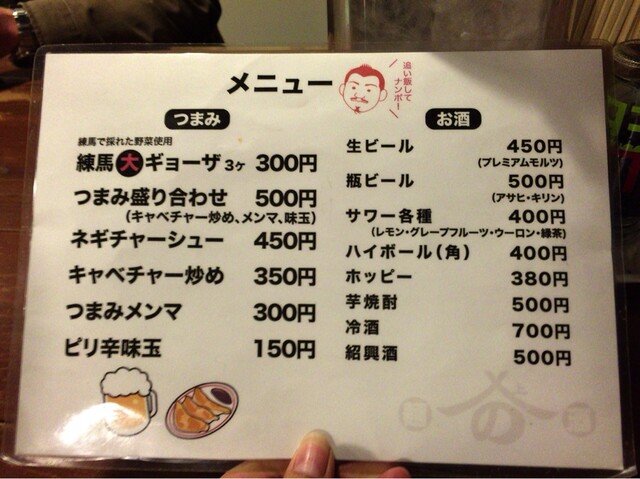 メニュー
追い飯して
ナンボー!
つまみ
練馬で採れた野菜使用
練馬大ギョーザ 3ヶ 300円
つまみ盛り合わせ 500円
(キャベチャー炒め、メンマ、味玉)
ネギチャーシュー 450円
キャベチャー炒め 350円
つまみメンマ 300円
ピリ辛味玉 150円
お酒
生ビール 450円
(プレミアムモルツ)
瓶ビール 500円
(アサヒ・キリン)
サワー各種 400円
(レモン・グレープフルーツ・ウーロン・緑茶)
ハイボール(角) 400円
ホッピー 380円
芋焼酎 500円
冷酒 700円
紹興酒 500円